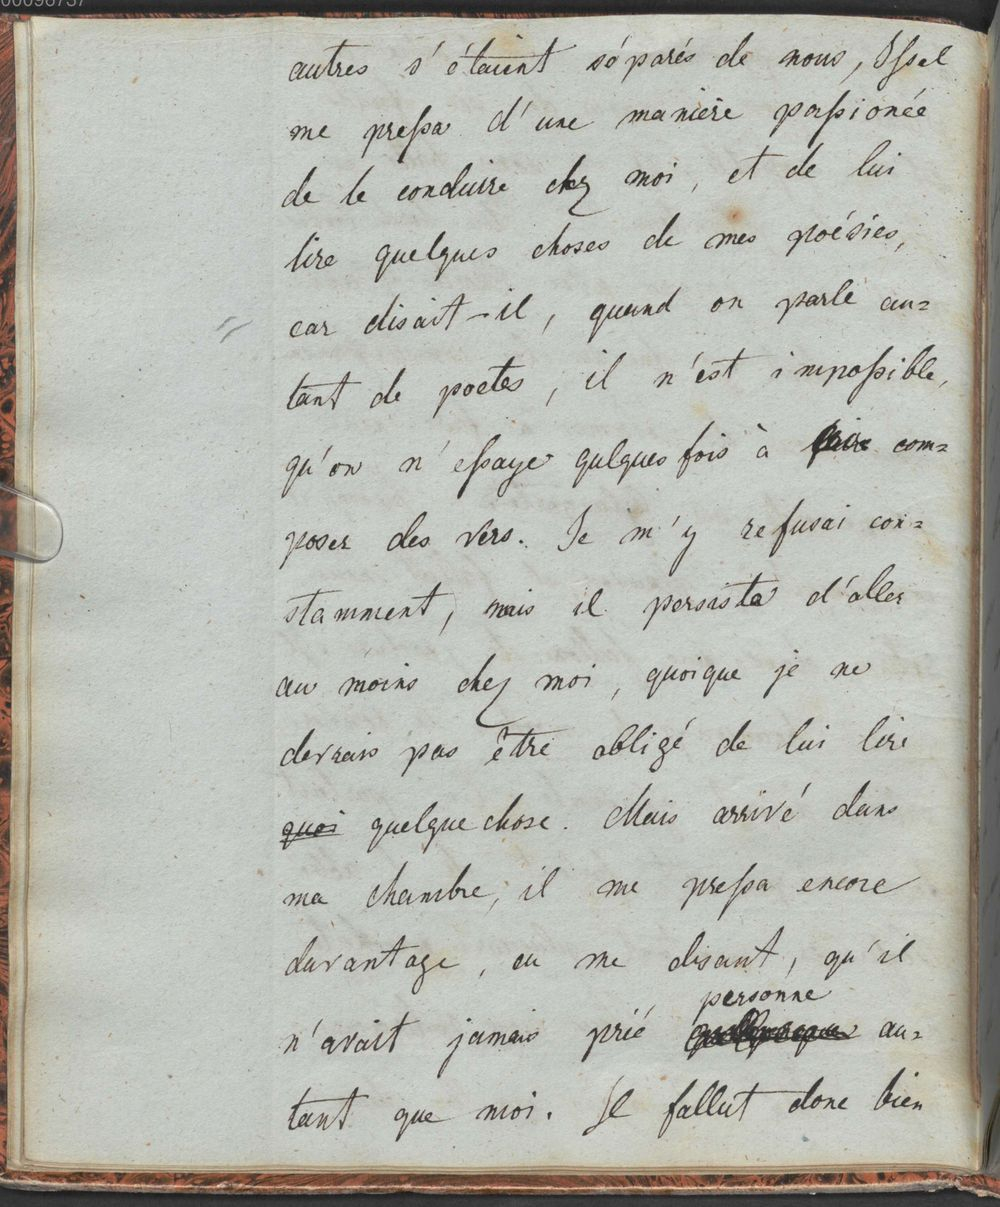 00096737
autres s'étaient séparés de nous, Issel
me pressa d'une manière passionée
de le conduire chez moi, et de lui
lire quelques choses de mes poésies,
car disait-il, quand on parle au=
tant de poetes, il n'est impossible,
qu'on n'essaye qulques fois à faire com=
poser des vers. Je m'y refusai con=
stamment, mais il persista d'aller
au moins chez moi, quoique je ne
devrais pas être obligé de lui lire
quoi quelque chose. Mais arrivé dans
ma chambre, il me pressa encore
davantage, en me disant, qu'il
personne
n'avait jamais prié au=
tant que moi. Il fallut donc bien